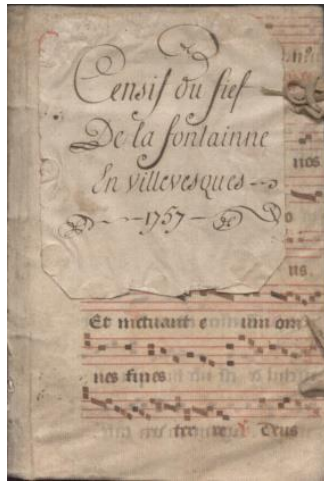 Censif du fief
De la fontainne
En villevesques
1757
nos
us.
Et metuant e um om
nes fines
ter re Deus